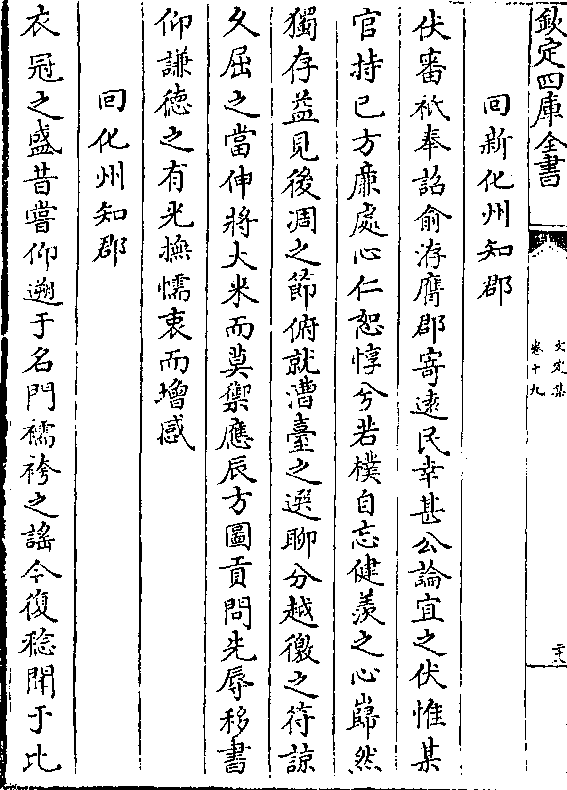 欽定四庫全書
文定集
卷十九
回新化州知郡
伏審祇奉詔俞洊膺郡寄遠民幸甚公論宜之伏惟某
官持已方亷處心仁恕惇兮若樸自忘健羡之心巋然
獨存益見後凋之節俯就漕臺之選聊分越徼之符諒
久屈之當伸將大来而莫禦應辰方圖貢問先辱移書
仰謙徳之有光撫懦衷而增感
回化州知郡
衣冠之盛昔嘗仰遡于名門襦袴之謠今復稔聞于比